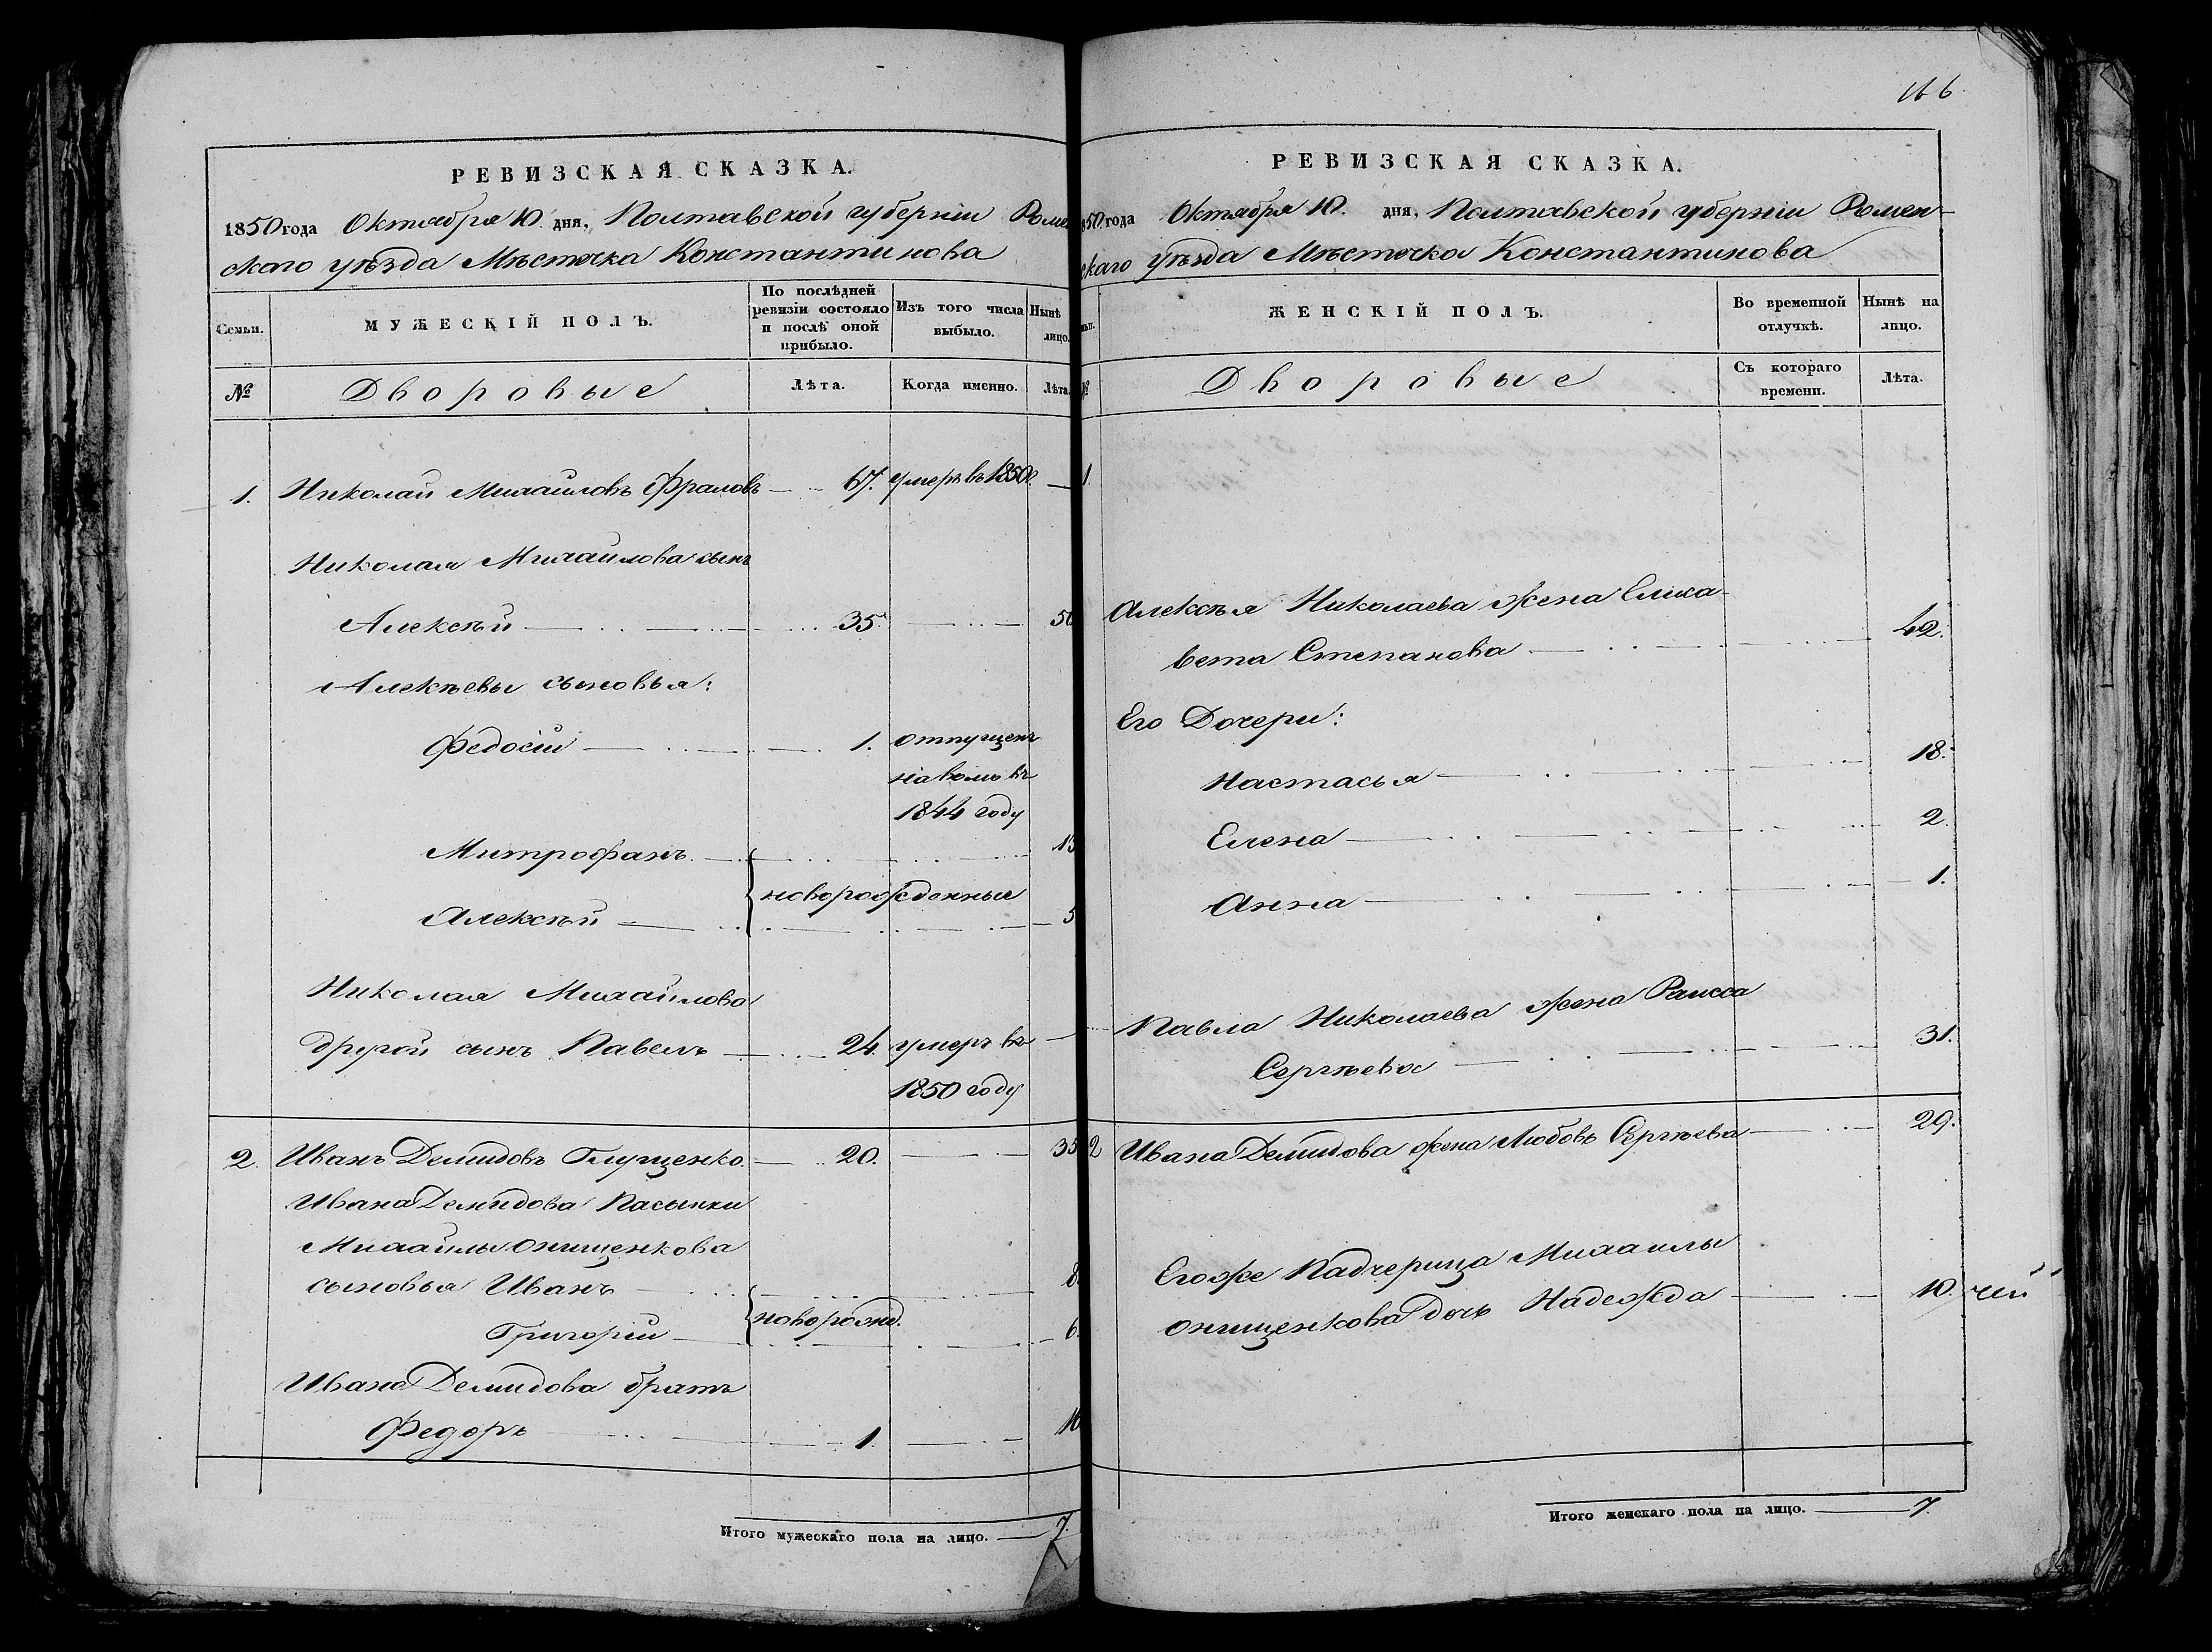 РЕВИЗСКАЯ СКАЗКА.
1850 года Октября 10. дня, Полтавской губерніи Роме
скаго уѣзда Мѣстечка Константинова
Семьи.
МУЖЕСКІЙ ПОЛЪ.
По послѣдней ревизіи состояло и послѣ оной прибыло.
Изъ того числа выбыло.
Нынѣ лицо.
№
Дворовые
Лѣта.
Когда именно.
Лѣта.
1. Николай Михайловъ Фраловъ 67. умеръ въ 1850.
Николая Михайлова сынъ
Алексѣй 35. 50
Алексѣевы сыновья:
Федосій 1. отпущенъ
на волю въ
1844 году
Митрофанъ 13
новорожденные
Алексѣй 5
Николая Михайлова
другой сынъ Павелъ 24. умеръ въ
1850 году
2. Иванъ Демидовъ Глущенко. 20. 35
Ивана Демидова Пасынки
Михайлы Онищенкова
сыновья Иванъ 8.
новорожд.
Григорій 6.
Ивана Демидова братъ
Федоръ 1. 16
Итого мужескаго пола на лицо. 7.
166
РЕВИЗСКАЯ СКАЗКА.
850 года Октября 10. дня, Полтавской губерніи Ромен-
скаго уѣзда Мѣстечка Константинова
ьи.
ЖЕНСКІЙ ПОЛЪ.
Во временной отлучкѣ.
Нынѣ на лицо.
№
Дворовые
Съ котораго времени.
Лѣта.
1.
Алексѣя Николаева жена Елиса-
вета Степанова 42.
Его Дочери:
Настасья 18.
Елена 2.
Анна 1.
Павла Николаева жена Раисса
Сергѣева 31.
2 Ивана Демидова жена Любовь Сергѣева 29.
Егоже Падчерица Михайлы
Онищенкова дочь Надежда 10.
Итого женскаго пола на лицо. 7.